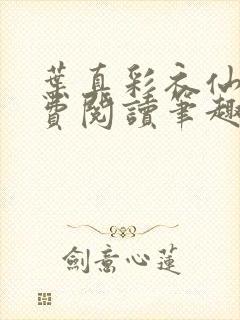 葉真彩衣仙
費閱讀筆趣
劍意心蓮